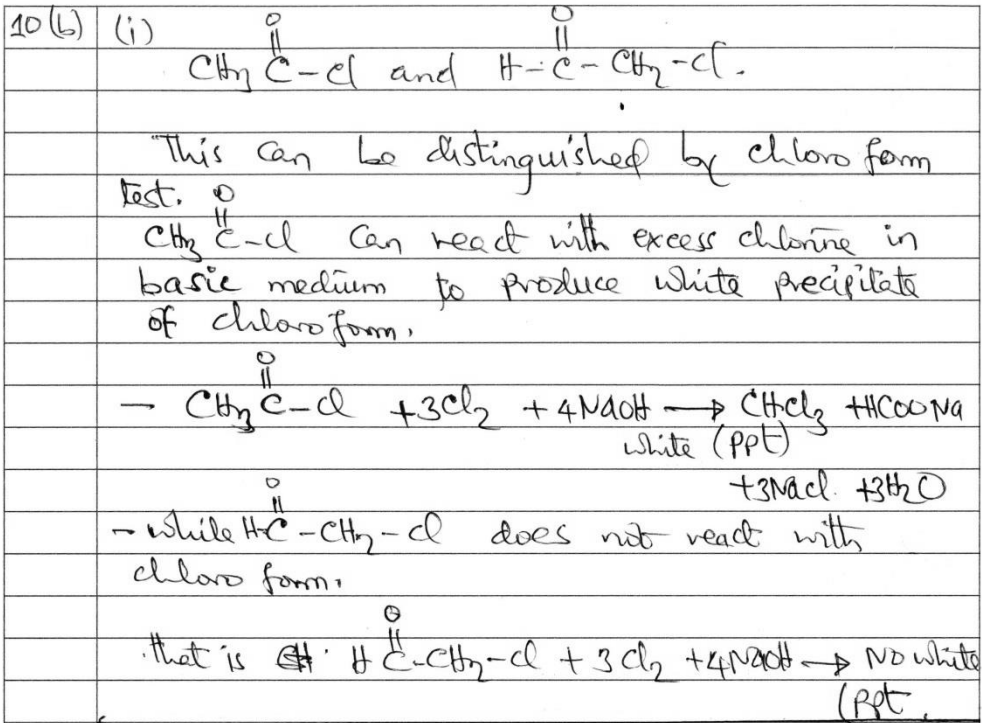 10(b) (i)
O O
|| ||
CH3 C-Cl and H-C-CH2-Cl.
This can be distinguished by chloro form
test. O
||
CH3 C-Cl Can react with excess chlorine in
basic medium to produce white precipitate
of chloro form.
O
||
- CH3 C-Cl +3Cl2 +4NaOH → CHCl3 +HCOONa
white (ppt)
O +3NaCl. +3H2O
||
- while H-C-CH2-Cl does not react with
chloro form.
O
||
that is H C-CH2-Cl + 3Cl2 +4NaOH → NO white
(ppt.